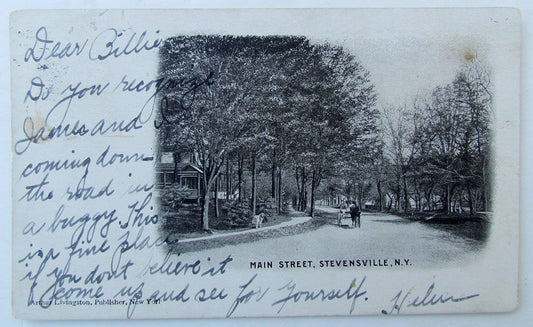 Dear Billie
Do you recognize
James and I
coming down
the road in
a buggy. This
is a fine place
if you don't believe it
come up and see for yourself. Helen
MAIN STREET, STEVENSVILLE, N.Y.
Arthur Livingston, Publisher, New York